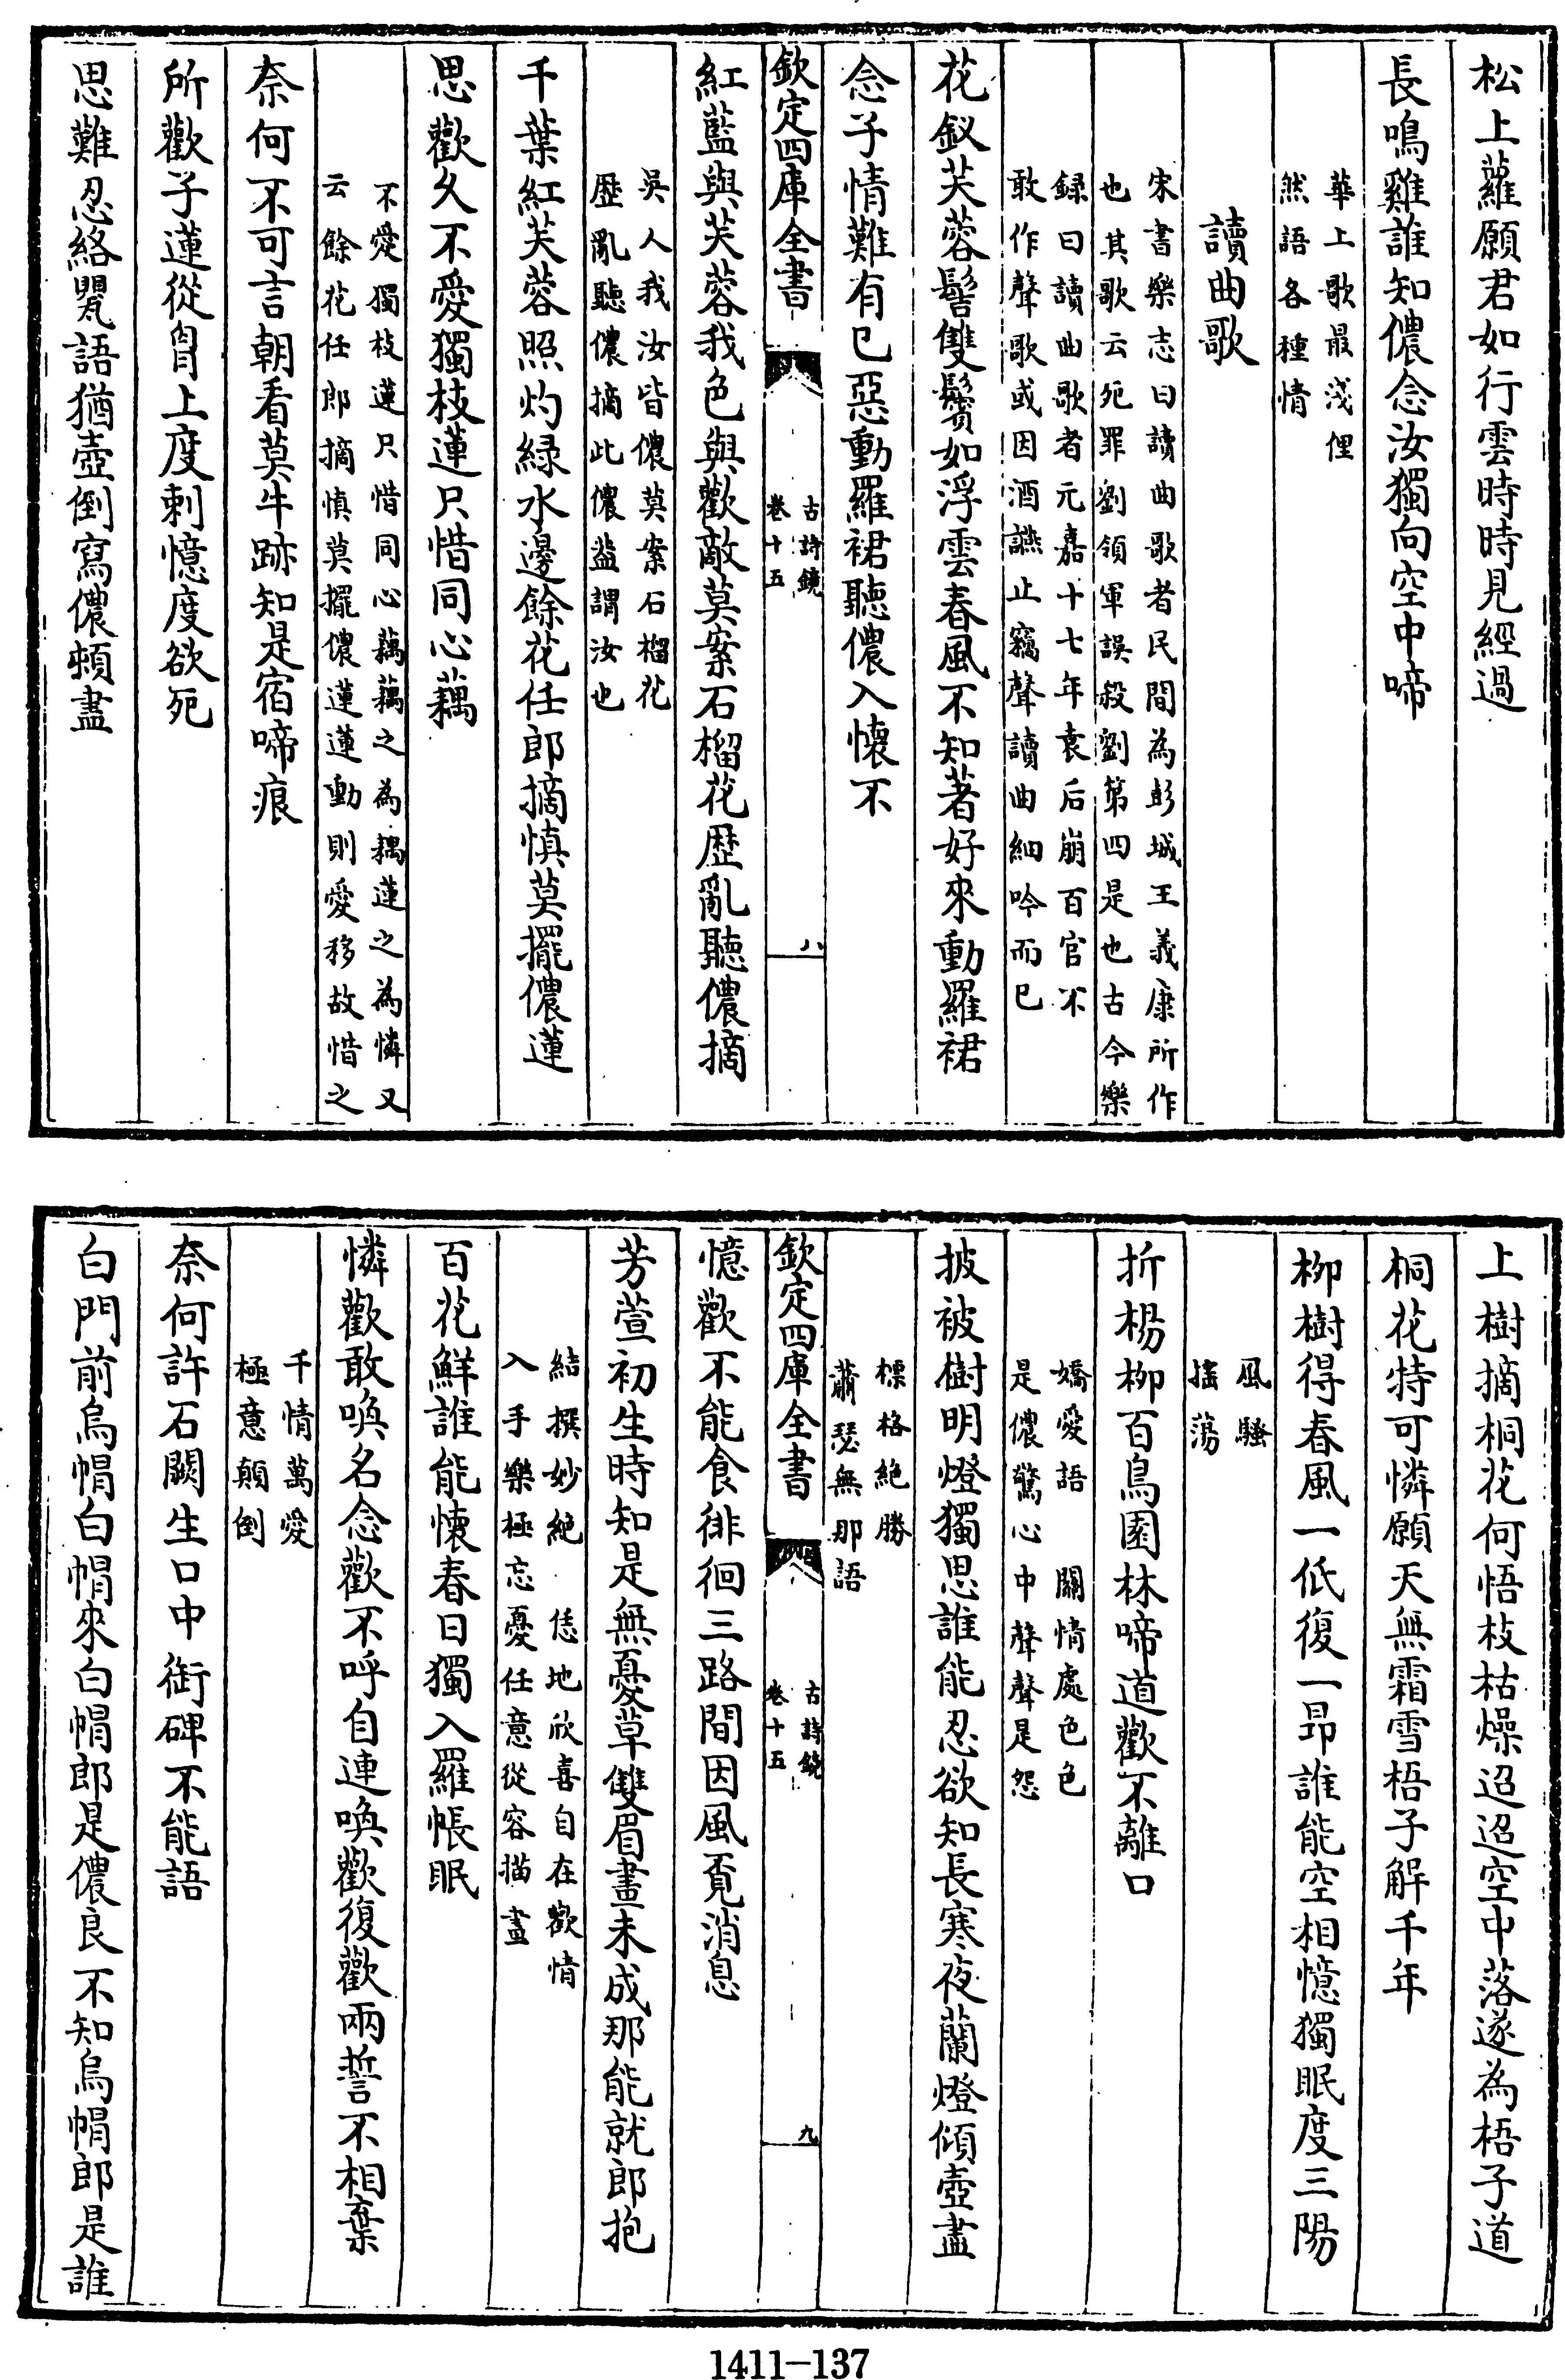 松上蘿願君如行雲時時見經過
長鳴雞誰知儂念汝獨向空中啼
華上歌最淺俚
然語各種情
讀曲歌
宋書樂志曰讀曲歌者民間為彭城王義康所作
也其歌云死罪劉領軍誤殺劉第四是也古今樂
録曰讀曲歌者元嘉十七年袁后崩百官不
敢作聲歌或因酒讌止竊聲讀曲細吟而已
花釵芙蓉髻雙鬢如浮雲春風不知著好來動羅裙
念子情難有已惡動羅裙聽儂入懷不
欽定四庫全書
古詩鏡
卷十五
八
紅藍與芙蓉我色與歡敵莫案石榴花歴亂聽儂摘
吳人我汝皆儂莫案石榴花
歴亂聽儂摘此儂盖謂汝也
千葉紅芙蓉照灼緑水邊餘花任郎摘慎莫擺儂蓮
思歡久不愛獨枝蓮只惜同心藕
不愛獨枝蓮只惜同心藕藕之為耦蓮之為憐又
云餘花任郎摘慎莫擺儂蓮蓮動則愛移故惜之
奈何不可言朝看莫牛跡知是宿啼痕
所歡子蓮從胷上度刺憶度欲死
思難忍絡甖語猶壺倒寫儂頓盡
上樹摘桐花何悟枝枯燥迢迢空中落遂為梧子道
桐花特可憐願天無霜雪梧子解千年
柳樹得春風一低復一昻誰能空相憶獨眠度三陽
風騷
摇蕩
折楊柳百鳥園林啼道歡不離口
嬌愛語　關情處色色
是儂驚心中聲聲是怨
披被樹明燈獨思誰能忍欲知長寒夜蘭燈傾壺盡
標格絶勝
蕭瑟無那語
欽定四庫全書
古詩鏡
卷十五
九
憶歡不能食徘徊三路間因風覔消息
芳萱初生時知是無憂草雙眉畫未成那能就郎抱
結撰妙絶　恁地欣喜自在歡情
入手樂極忘憂任意從容描畫
百花鮮誰能懷春日獨入羅帳眠
憐歡敢喚名念歡不呼自連喚歡復歡兩誓不相棄
千情萬愛
極意顛倒
奈何許石闕生口中銜碑不能語
白門前烏帽白帽來白帽郎是儂良不知烏帽郎是誰
1411—137